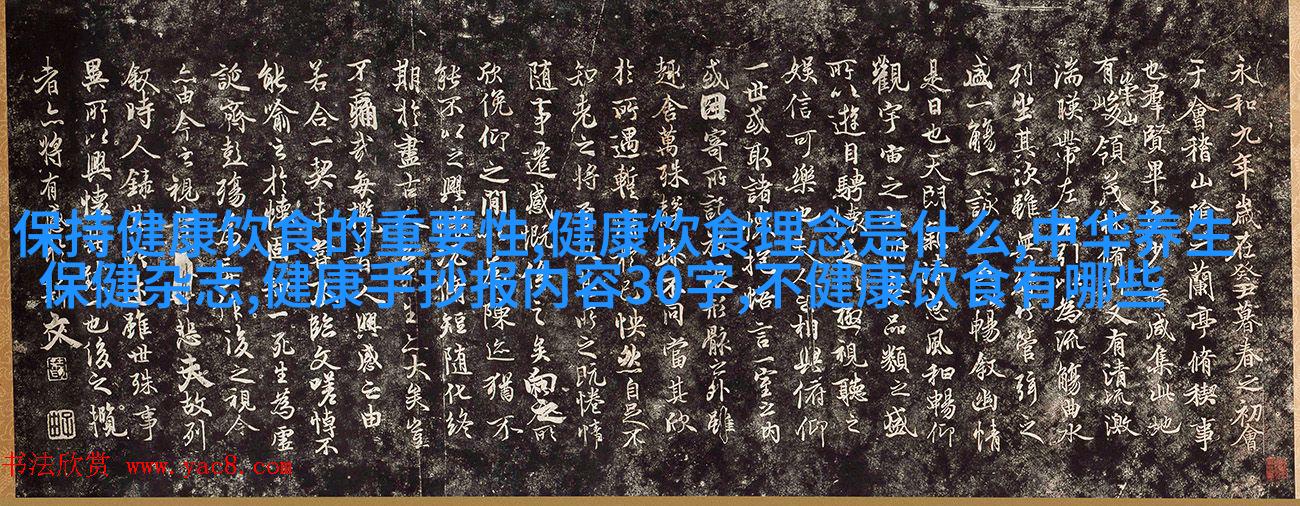 永和九年歲在癸丑暮春之初會
于會稽山陰之蘭亭脩稧事
也群賢畢至少長咸集此地
有崇山峻領茂林脩竹又有清流激
湍暎帶左右引以為流觴曲水
列坐其次雖無絲竹管弦之
盛一觴一詠亦足以暢敘幽情
是日也天朗氣清惠風和暢仰
觀宇宙之大俯察品類之盛
所以遊目騁懷足以極視聽之
娛信可樂也夫人之相與俯仰
一世或取諸懷抱悟言一室之內
或因寄所託放浪形骸之外雖
趣舍萬殊靜躁不同當其欣
於所遇暫得於己怏然自足不
知老之將至及其所之既惓情
隨事遷感慨係之矣向之所
欣俛仰之間以為陳迹猶不
能不以之興懷況脩短隨化終
期於盡古人云死生亦大矣豈
不痛哉每攬昔人興感之由
若合一契未嘗不臨文嗟悼不
能喻之於懷固知一死生為虛
誕齊彭殤為妄作後之視今
亦由今之視昔悲夫故列
敘時人錄其所述雖世殊事
異所以興懷其致一也後之攬
者亦將有感於斯文
保持健康饮食的重要性,健康饮食理念是什么,中华养生
保健杂志,健康手抄报内容30字,不健康饮食有哪些
书法欣赏 www.yac8.com